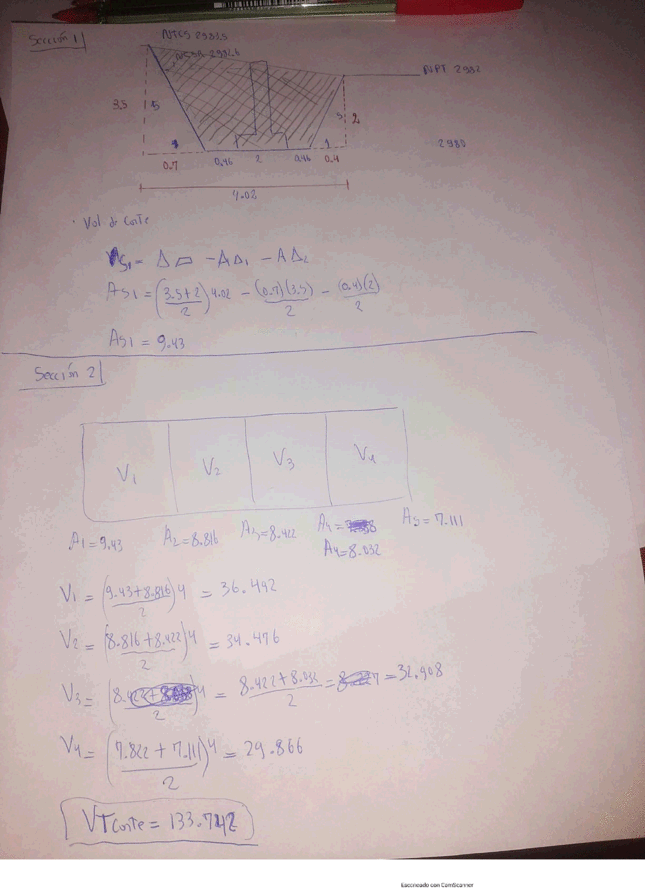 Sección 1
NTCS 2983.5
NTSR 2983.5
NPT 2982
3.5 5 5 2
1 1 2980
0.7 0.46 2 0.46 0.4
4.02
· Vol de Corte
AS1 = A▱ - A△1 - A△2
AS1 = (3.5+2/2)4.02 - (0.7)(3.5)/2 - (0.4)(2)/2
AS1 = 9.43
Sección 2
V1 V2 V3 V4
A1=9.43 A2=8.816 A3=8.422 A4= A5=7.111
A4=8.032
V1 = (9.43+8.816/2)4 = 36.492
V2 = (8.816+8.422/2)4 = 34.476
V3 = (8.422+/2)4 = 8.422+8.032/2 = = 32.908
V4 = (7.822+7.111/2)4 = 29.866
VTcorte = 133.742
Escaneado con CamScanner